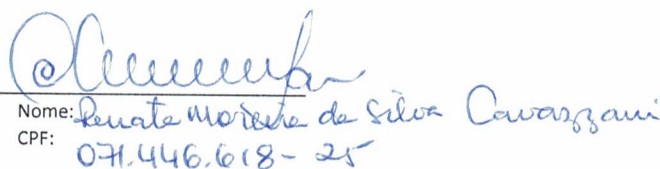 Nome: Renata Moreira da Silva Cavazzani
CPF: 071.446.618-25